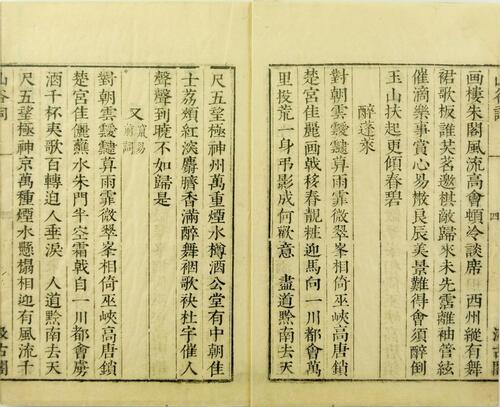 畫樓朱閣風流高會頓冷談席　西州縱有舞
裙歌板誰共茗邀棋敵歸來未先霑離袖管絃
催滴樂事賞心易散良辰美景難得會須醉倒
玉山扶起更傾春碧
醉蓬萊
對朝雲靉靆暮雨霏微翠峯相倚巫峽高唐鎖
楚宮佳麗畫戟移春靚粧迎馬向一川都會萬
里投荒一身弔影成何歡意　盡道黔南去天
尺五望極神州萬重煙水樽酒公堂有中朝佳
士荔頰紅淡麝臍香滿醉舞裀歌袂杜宇催人
聲聲到曉不如歸是
又 竄易前詞
對朝雲靉靆暮雨霏微翠峯相倚巫峽高唐鎖
楚宮佳麗蘸水朱門半空霜戟自一川都會虜
酒千杯夷歌百轉迫人垂淚　人道黔南去天
尺五望極神京萬種煙水懸榻相迎有風流千
山谷詞
汲古閣